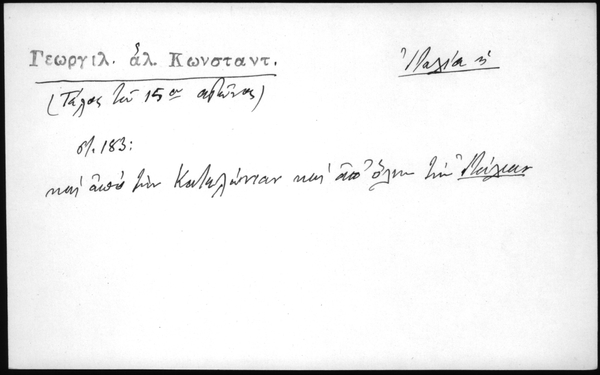 Γεωργιλ. ἁλ. Κωνσταντ.
Ἰταλία ἡ
(Τέλος τοῦ 15ου αἰῶνος)
στ. 183:
καὶ ἀπὸ τὴν Καταλώνιαν καὶ ἀπ' ὅλην τὴν Ἰτάλιαν